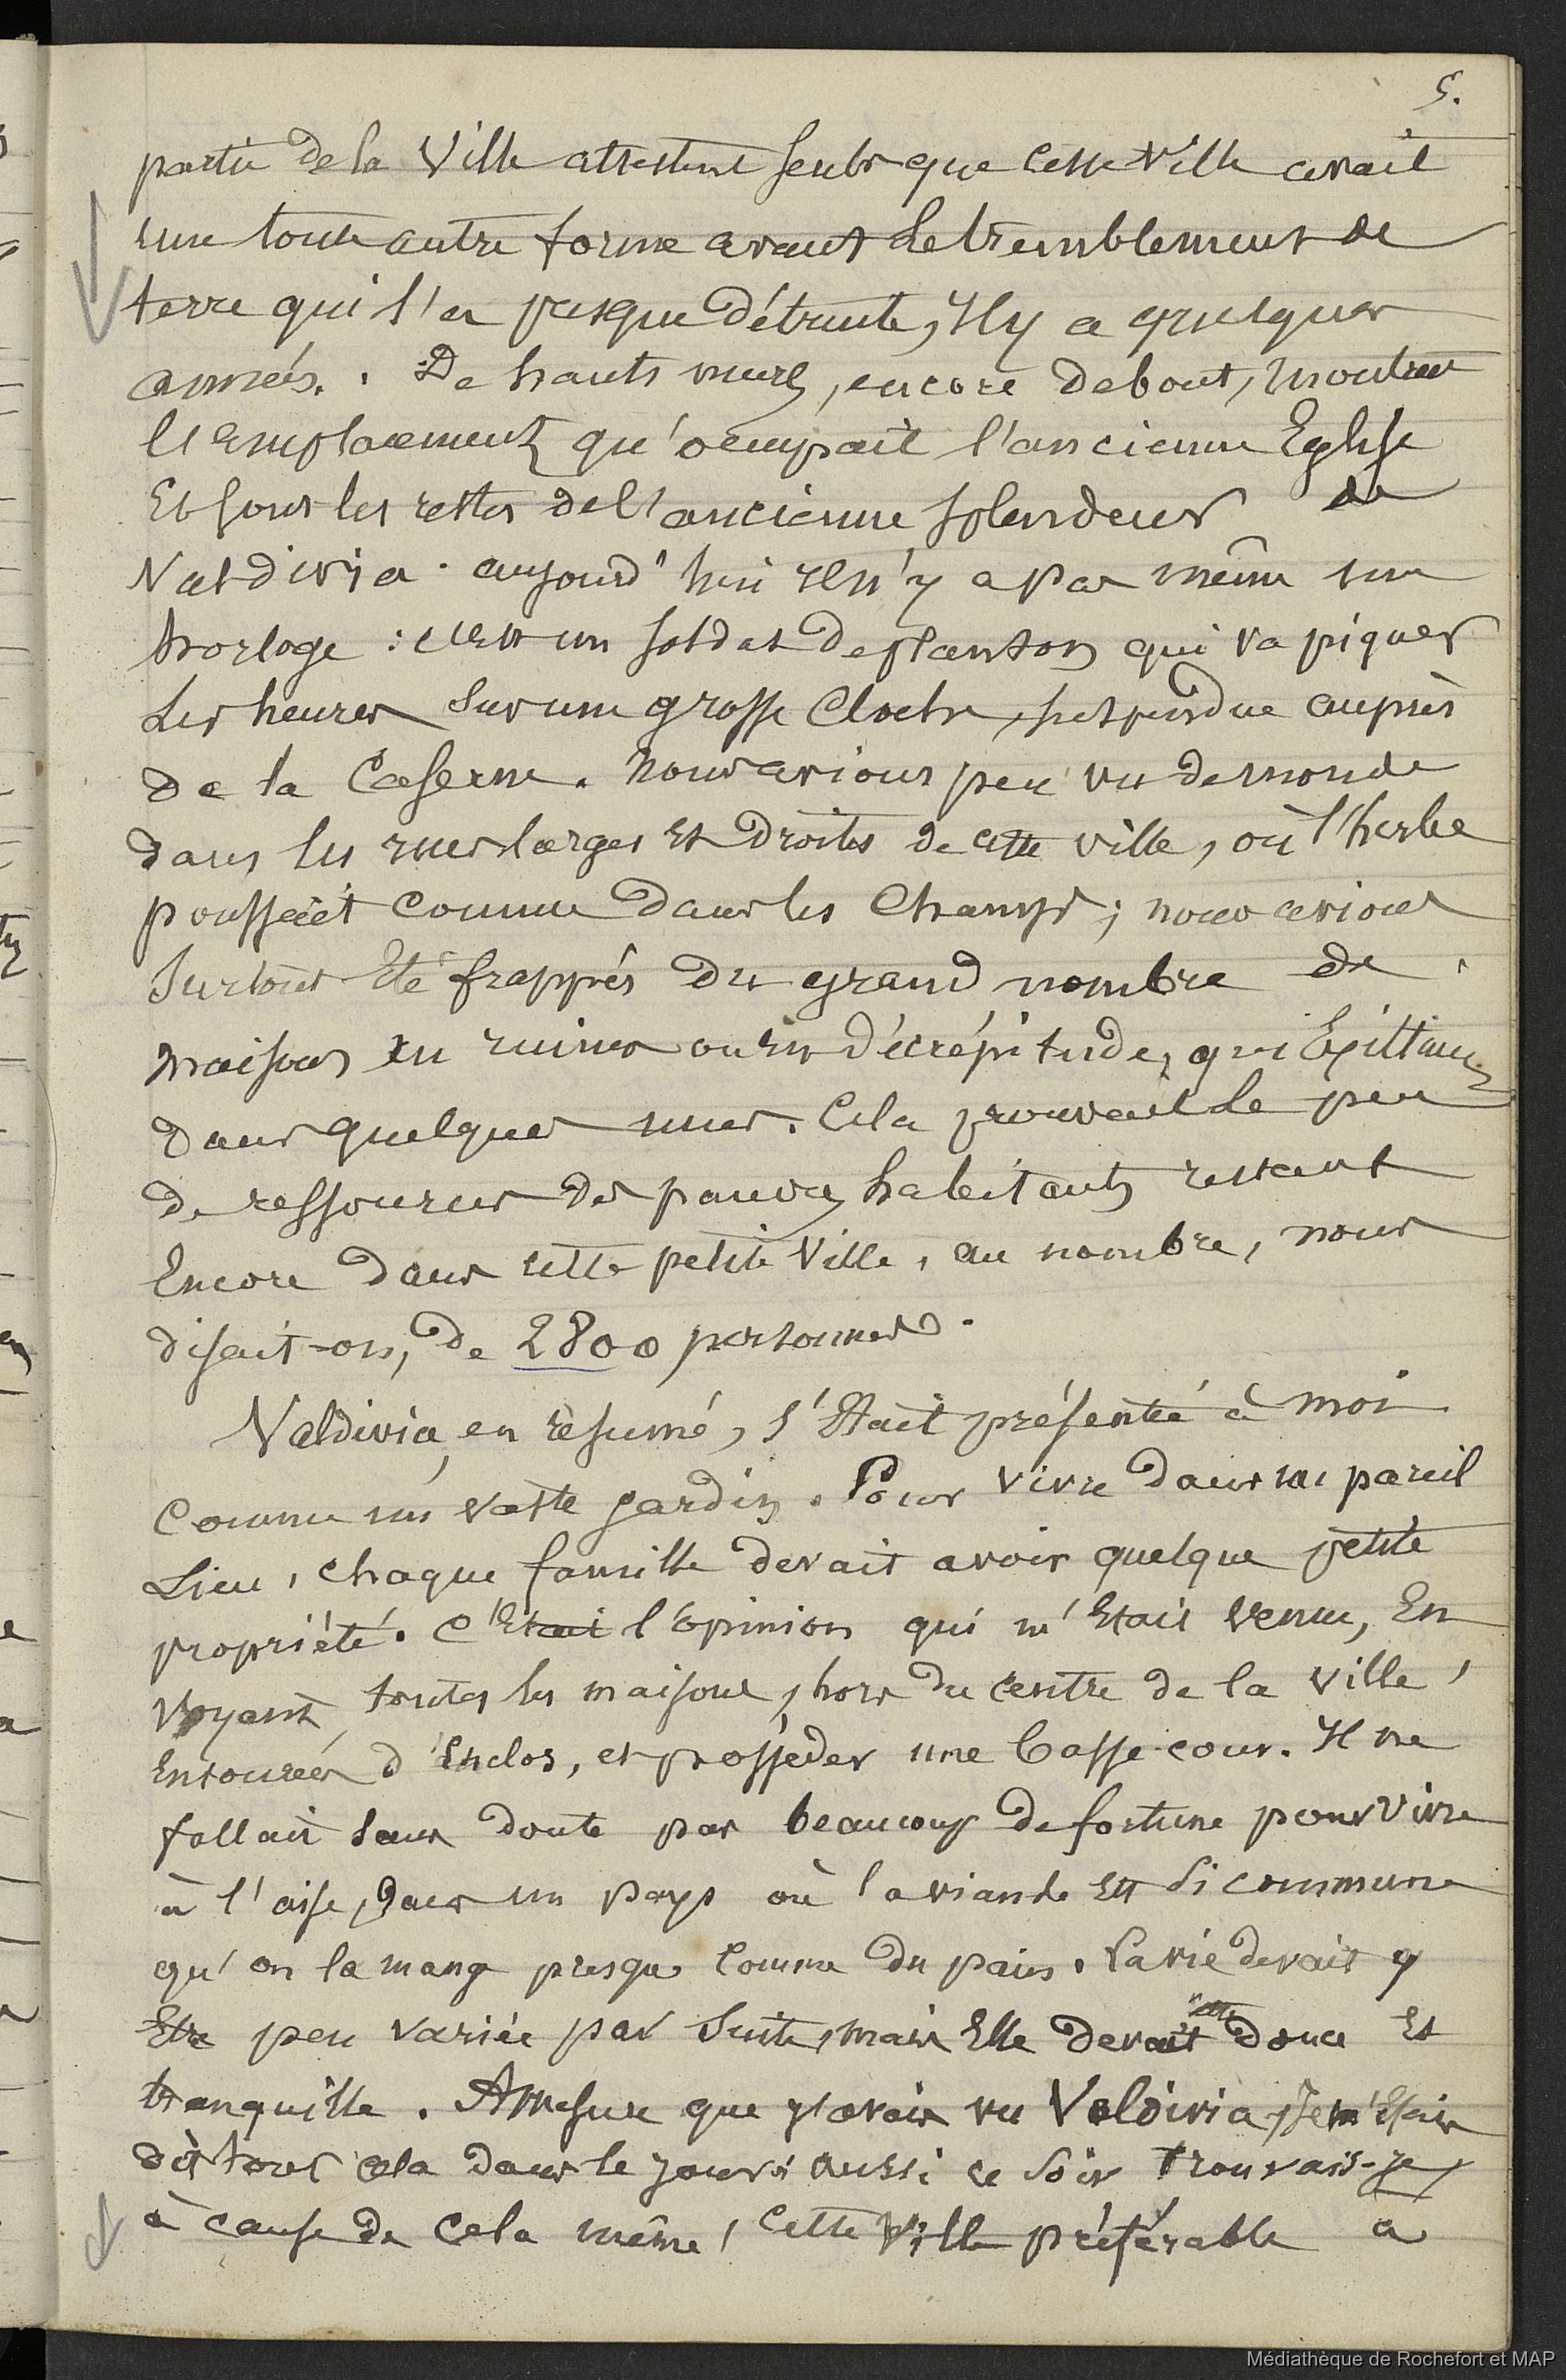 5.
partie de la Ville attestent seuls que cette Ville avait
une toute autre forme avant le tremblement de
terre qui l'a presque détruite, Il y a quelques
années. De hauts murs, encore debout, montrent
l'emplacement qu'occupait l'ancienne Eglise
Et sont les restes de l'ancienne splendeur de
Valdivia. aujourd'hui il n'y a pas même une
horloge : c'est un soldat de planton qui va piquer
les heures sur une grosse Cloche, suspendue auprès
de la Caserne. Nous avions peu vu de monde
dans les rues larges et droites de cette ville, où l'herbe
poussait comme dans les Champs ; nous avions
surtout été frappés du grand nombre de
maisons en ruines ou en décrépitude, qui Existaient
dans quelques rues. Cela prouvait le peu
de ressources des pauvres habitants restant
Encore dans cette petite Ville, au nombre, nous
disait-on, de 2800 personnes.
Valdivia, en résumé, s'était présentée à moi
comme un vaste jardin. Pour vivre dans un pareil
Lieu, chaque famille devait avoir quelque petite
propriété. C'Etait l'opinion qui m'était venue, En
voyant toutes les maisons, hors du centre de la ville,
Entourées d'Enclos, et posséder une basse-cour. Il ne
fallait sans doute pas beaucoup de fortune pour vivre
à l'aise, dans un pays où la viande est si commune
qu'on la mange presque comme du pain. La vie devait y
Etre peu variée par suite, mais Elle devait être douce Et
tranquille. A mesure que j'avais vu Valdivia, je m'étais
dit tout cela dans le jour ; aussi ce soir trouvais-je,
à cause de cela même, cette Ville préférable à
Médiathèque de Rochefort et MAP